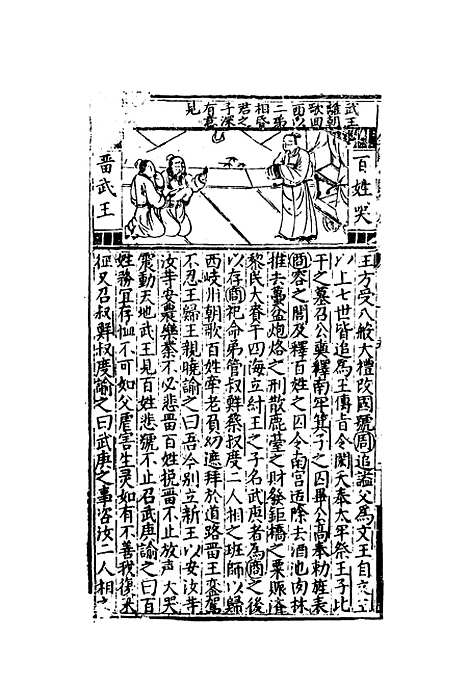 武王
離朝
歌回
西以
二弟
相啓
君之
子深
有意
見
百姓哭
畱武王
王方受八般大禮改國號周追謚父為文王自文王
以上七世皆追為王傳旨令閎夭奉太牢祭王子比
干之墓召公奭釋南牢箕子之囚畢公高奉勑旌表
商容之閭及釋百姓之囚令南宮适除去酒池肉林
推去蠆盆炮烙之刑散鹿臺之財發鉅橋之粟賑濟
黎民大賚于四海立紂王之子名武庚者為商之後
以存商祀命弟管叔鮮蔡叔度二人相之班師以歸
西岐州朝歌百姓牽老負幼遮拜於道路畱王鑾駕
不忍王歸王親曉諭之曰吾今別立新王以安汝等
汝等安農樂業不必悲畱百姓挽畱不止放聲大哭
震動天地武王見百姓悲號不止召武庚諭之曰百
姓務宜存恤不可如父虐害生灵如有不善我復來
征又召叔鮮叔度諭之曰武庚之事咨汝二人相之